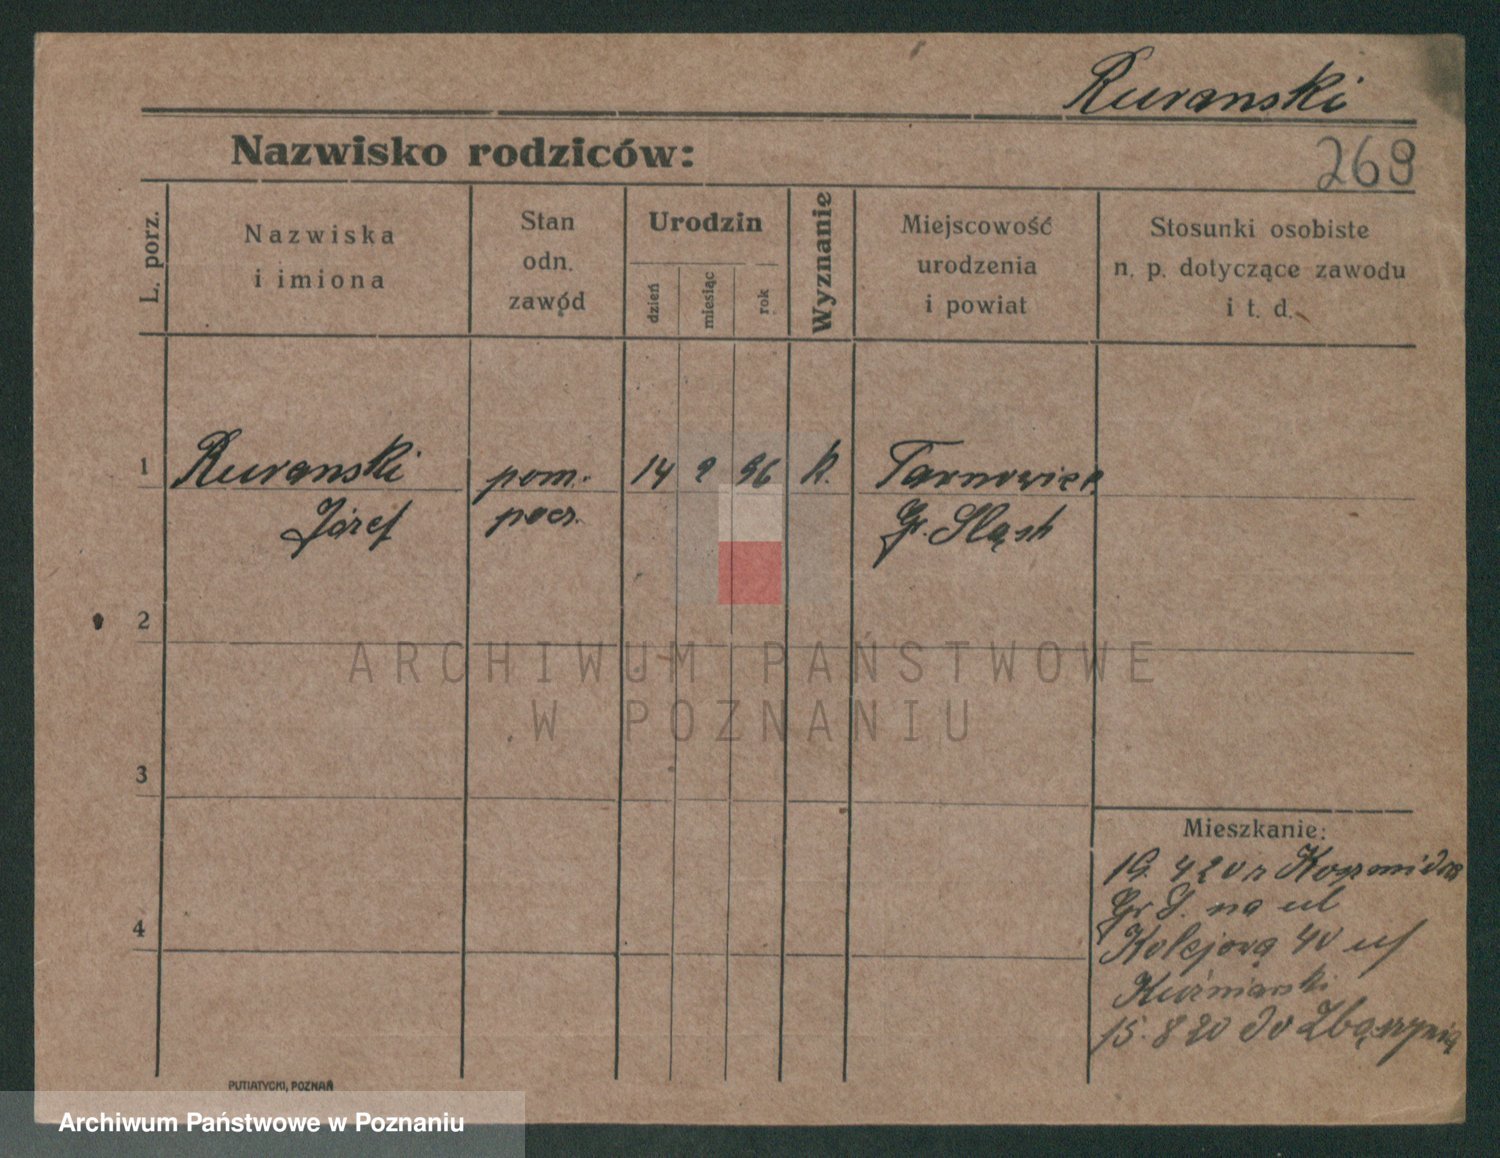 Ruranski
Nazwisko rodziców:
269
L. porz.
Nazwiska
i imiona
Stan
odn.
zawód
Urodzin
dzień
miesiąc
rok
Wyznanie
Miejscowość
urodzenia
i powiat
Stosunki osobiste
n. p. dotyczące zawodu
i t. d.
1
Ruranski
Józef
pom.
pocz.
14 2 96
k.
Tarnowice
Gr. Sląsk
2
3
4
Mieszkanie:
19. 4 20 z
Gr S. na ul
Kolejową 40 u
Kuźniarski
15. 8 20 do Zbąszynia
PUTIATYCKI, POZNAŃ
ARCHIWUM PAŃSTWOWE
W POZNANIU
Archiwum Państwowe w Poznaniu